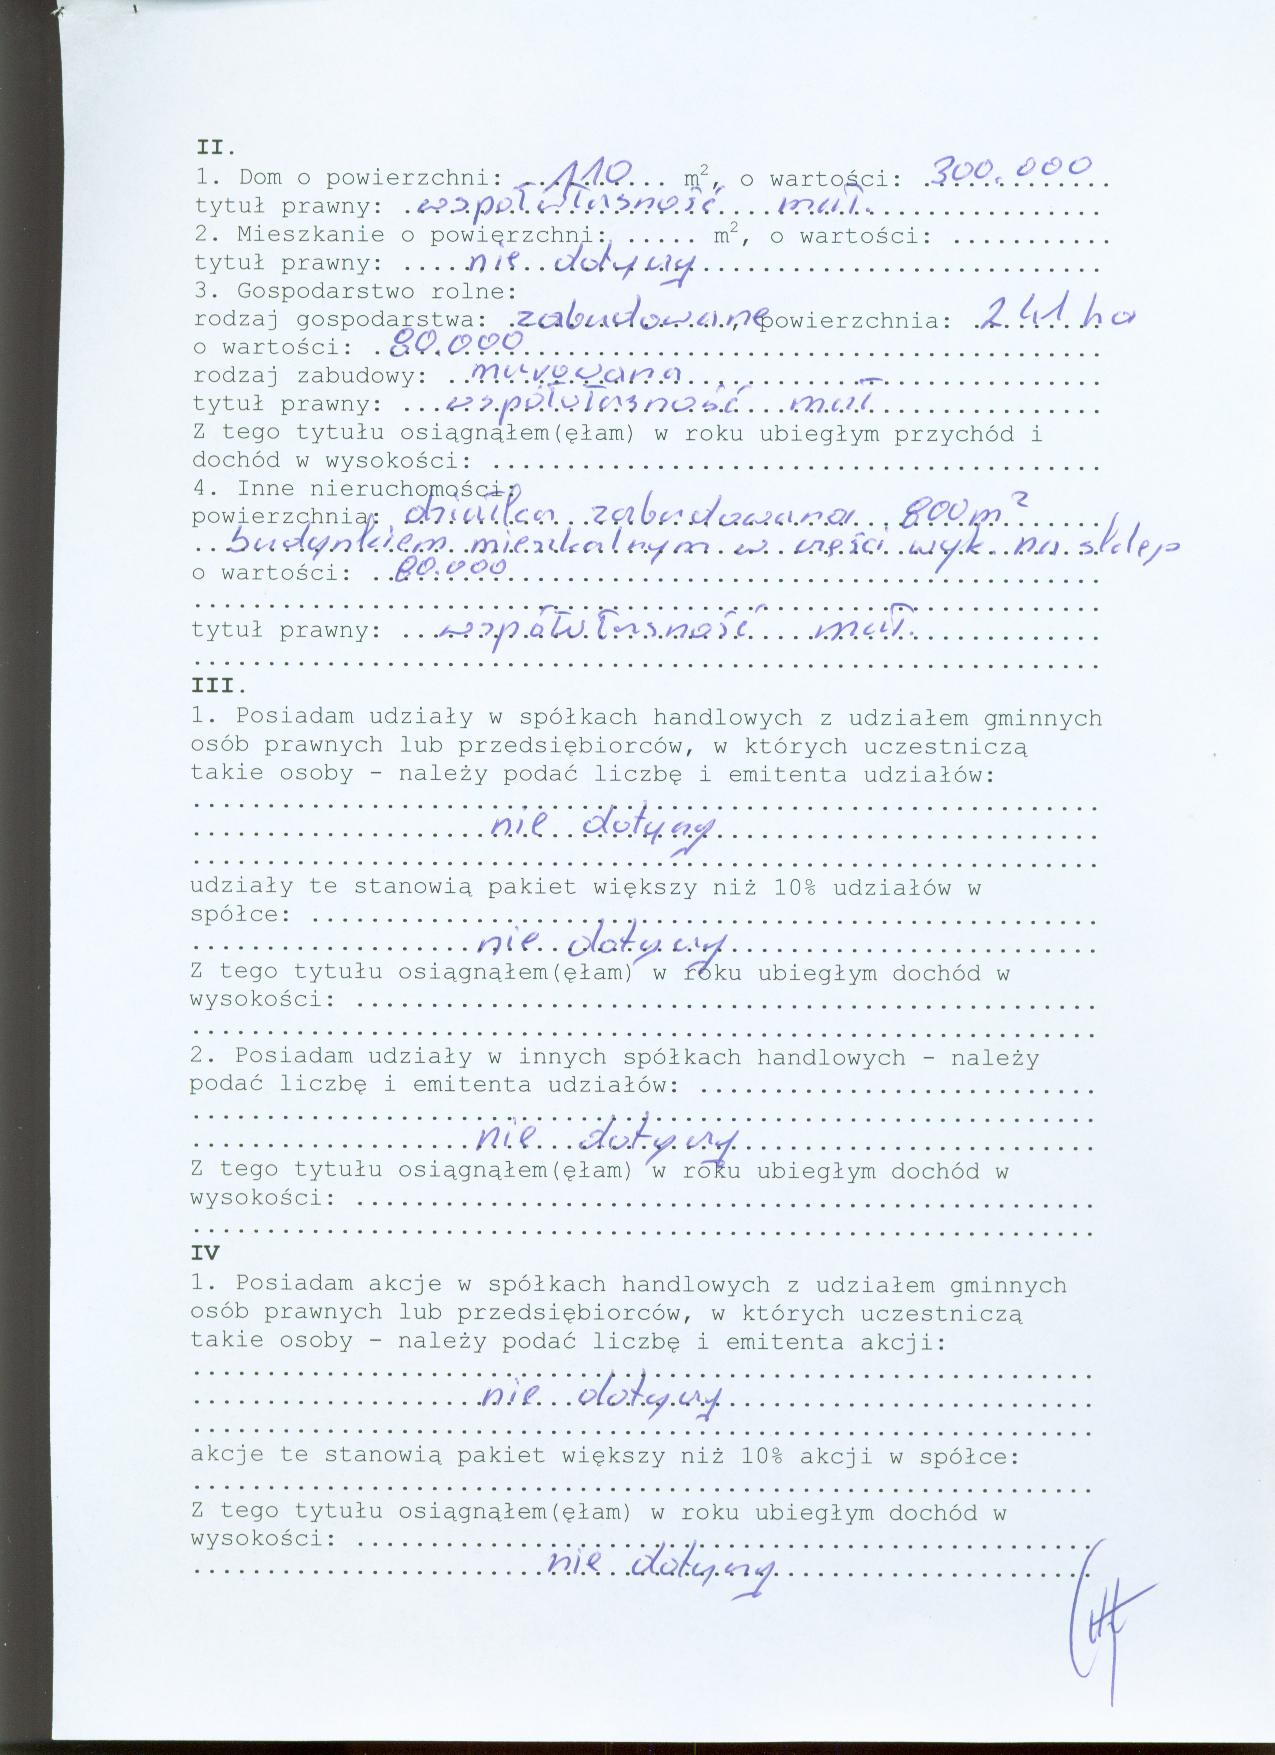 II.
1. Dom o powierzchni: ...110... m², o wartości: 300.000
tytuł prawny: .współwłasność....mał.................
2. Mieszkanie o powierzchni: ..... m², o wartości: ...........
tytuł prawny: .....nie..dotyczy............................
3. Gospodarstwo rolne:
rodzaj gospodarstwa: .zabudowane, powierzchnia: .2.41 ha
o wartości: .80.000.......................................
rodzaj zabudowy: ..murowana............................
tytuł prawny: ...współwłasność...mał................
Z tego tytułu osiągnąłem(ęłam) w roku ubiegłym przychód i
dochód w wysokości: .........................................
4. Inne nieruchomości:
powierzchnia: działka..zabudowana..800m².......
..budynkiem.mieszkalnym.w..części.wyk..na.sklep
o wartości: ..80.000........................................
.............................................................
tytuł prawny: ...współwłasność.....mał.............
.............................................................
III.
1. Posiadam udziały w spółkach handlowych z udziałem gminnych
osób prawnych lub przedsiębiorców, w których uczestniczą
takie osoby - należy podać liczbę i emitenta udziałów:
.............................................................
....................nie..dotyczy..........................
.............................................................
udziały te stanowią pakiet większy niż 10% udziałów w
spółce: .....................................................
...................nie..dotyczy.........................
Z tego tytułu osiągnąłem(ęłam) w roku ubiegłym dochód w
wysokości: ..................................................
.............................................................
2. Posiadam udziały w innych spółkach handlowych - należy
podać liczbę i emitenta udziałów: ...........................
.............................................................
...................nie...dotyczy........................
Z tego tytułu osiągnąłem(ęłam) w roku ubiegłym dochód w
wysokości: ..................................................
.............................................................
IV
1. Posiadam akcje w spółkach handlowych z udziałem gminnych
osób prawnych lub przedsiębiorców, w których uczestniczą
takie osoby - należy podać liczbę i emitenta akcji:
.............................................................
...................nie...dotyczy.........................
.............................................................
akcje te stanowią pakiet większy niż 10% akcji w spółce:
.............................................................
Z tego tytułu osiągnąłem(ęłam) w roku ubiegłym dochód w
wysokości: ..................................................
........................nie..dotyczy.....................